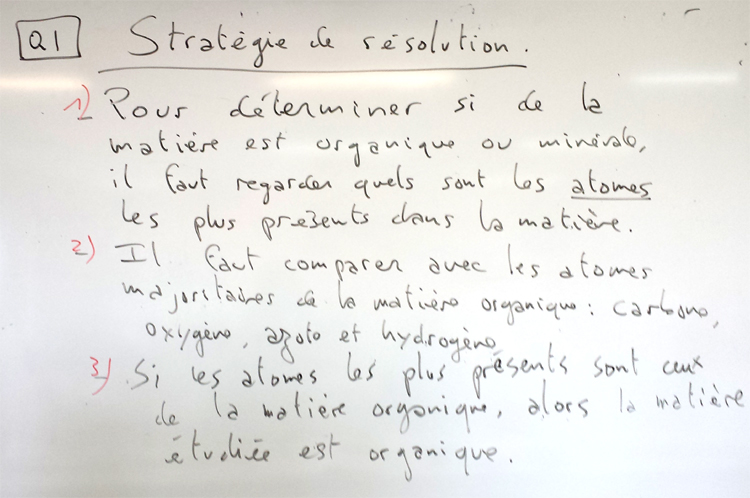 Q1 Stratégie de résolution.
1) Pour déterminer si de la
matière est organique ou minérale,
il faut regarder quels sont les atomes
les plus présents dans la matière.
2) Il faut comparer avec les atomes
majoritaires de la matière organique : carbone,
oxygène, azote et hydrogène.
3) Si les atomes les plus présents sont ceux
de la matière organique, alors la matière
étudiée est organique.